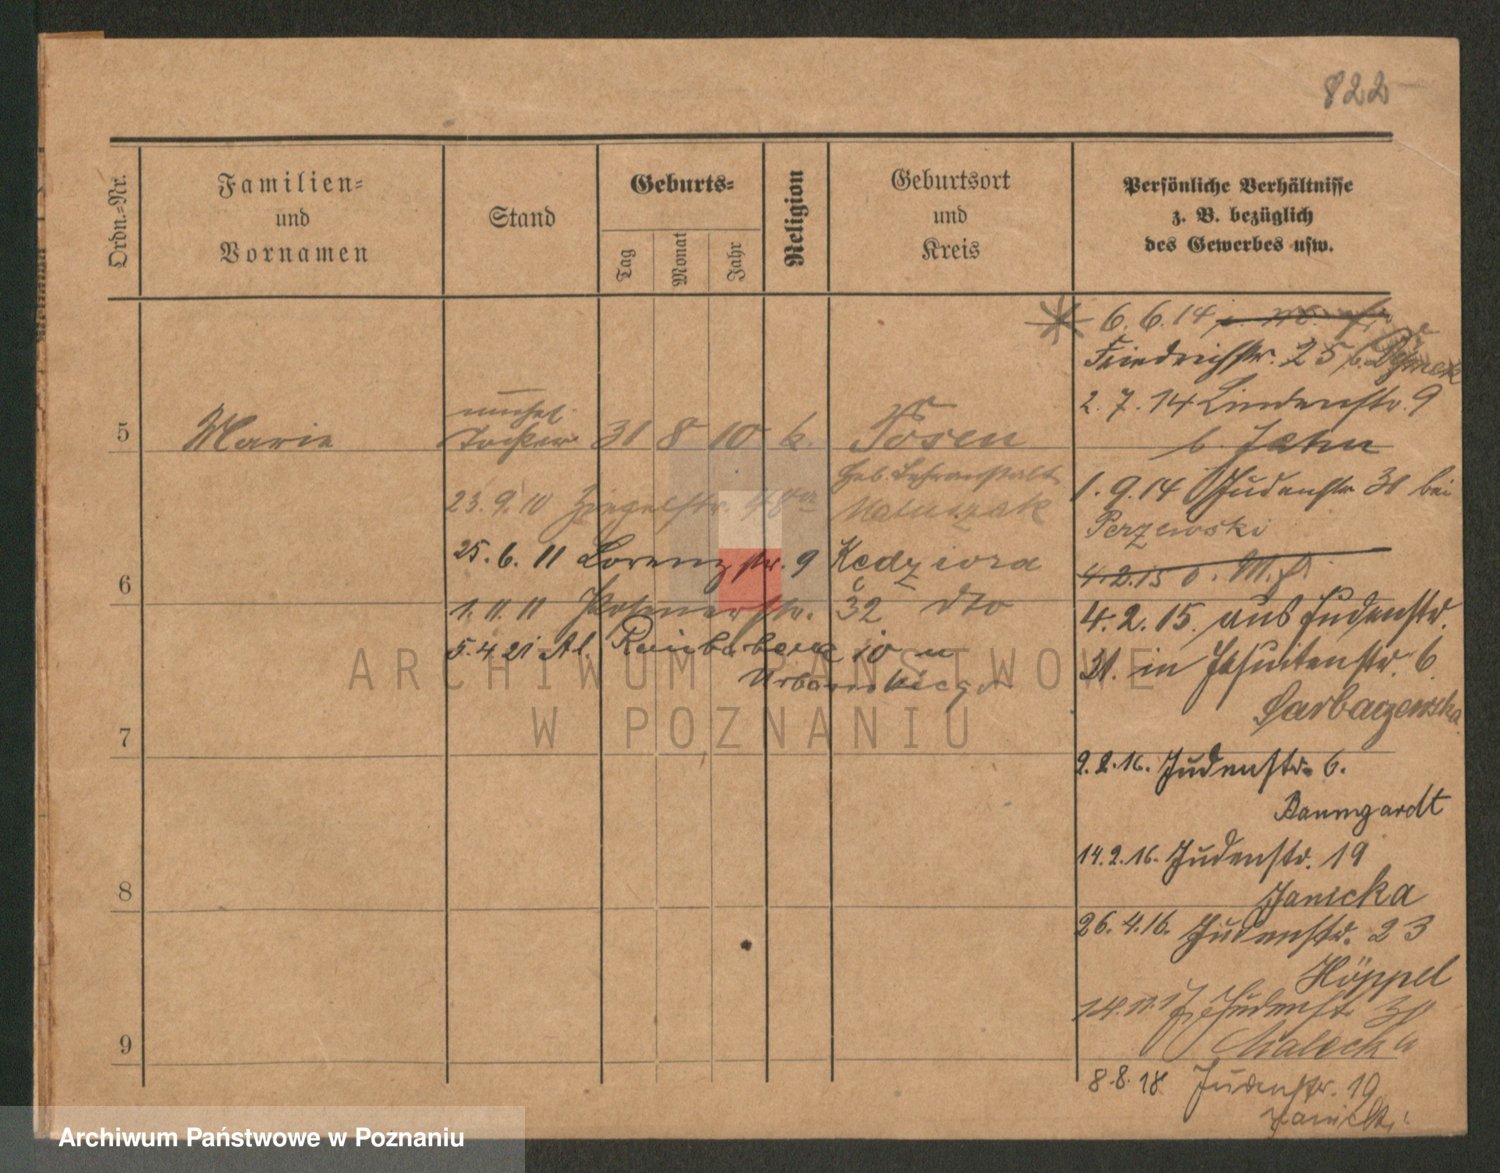 822
Ordn.-Nr.
Familien-
und
Vornamen
Stand
Geburts-
Tag
Monat
Jahr
Religion
Geburtsort
und
Kreis
Persönliche Verhältnisse
z. B. bezüglich
des Gewerbes usw.
5
Marie
unehel.
Tochter
31 8 10 k.
Posen
Heb. Lehranstalt
23.9.10 Ziegelstr.
Matuszak
25.6.11 Lorenzstr. 9 Kędziora
1.11.11 Posenerstr. 32 dto
5.4.21 Al. Reinb
10 u
Urbańskiego
6
7
8
9
6.6.14
Friedrichstr. 25 b. Dymek
2.7.14 Lindenstr. 9
b. Jahn
1.9.14 Judenstr. 31 bei
Perzewski
4.2.15
4.2.15. aus Judenstr.
31. in Jesuitenstr. 6
Garbaczewska
9.2.16. Judenstr. 6.
Baumgardt
14.2.16. Judenstr. 19
Janicka
26.4.16. Judenstr. 23
Höppel
14.11.17 Judenstr. 30
Malecka
8.8.18 Judenstr. 19
ARCHIWUM PAŃSTWOWE
W POZNANIU
Archiwum Państwowe w Poznaniu